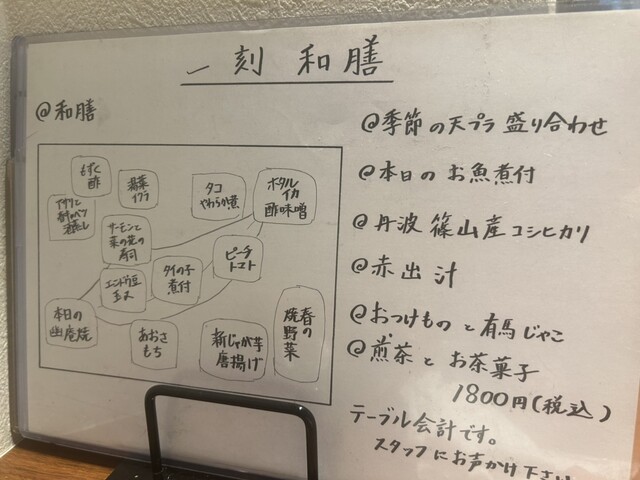 一刻 和膳
@和膳
もずく
酢
湯葉
イクラ
タコ
やわらか煮
ホタル
イカ
酢味噌
アサリと
春キャベツ
酒蒸し
サーモンと
菜の花の
寿司
ピーチ
トマト
エンドウ豆
玉子
タイの子
煮付
本日の
幽庵焼
あおさ
もち
新じゃが芋
唐揚げ
春の
焼野菜
@季節の天プラ盛り合わせ
@本日の お魚煮付
@丹波 篠山産コシヒカリ
@赤出汁
@おつけものと有馬じゃこ
@煎茶とお茶菓子
1800円(税込)
テーブル会計です。
スタッフにお声かけ下さい